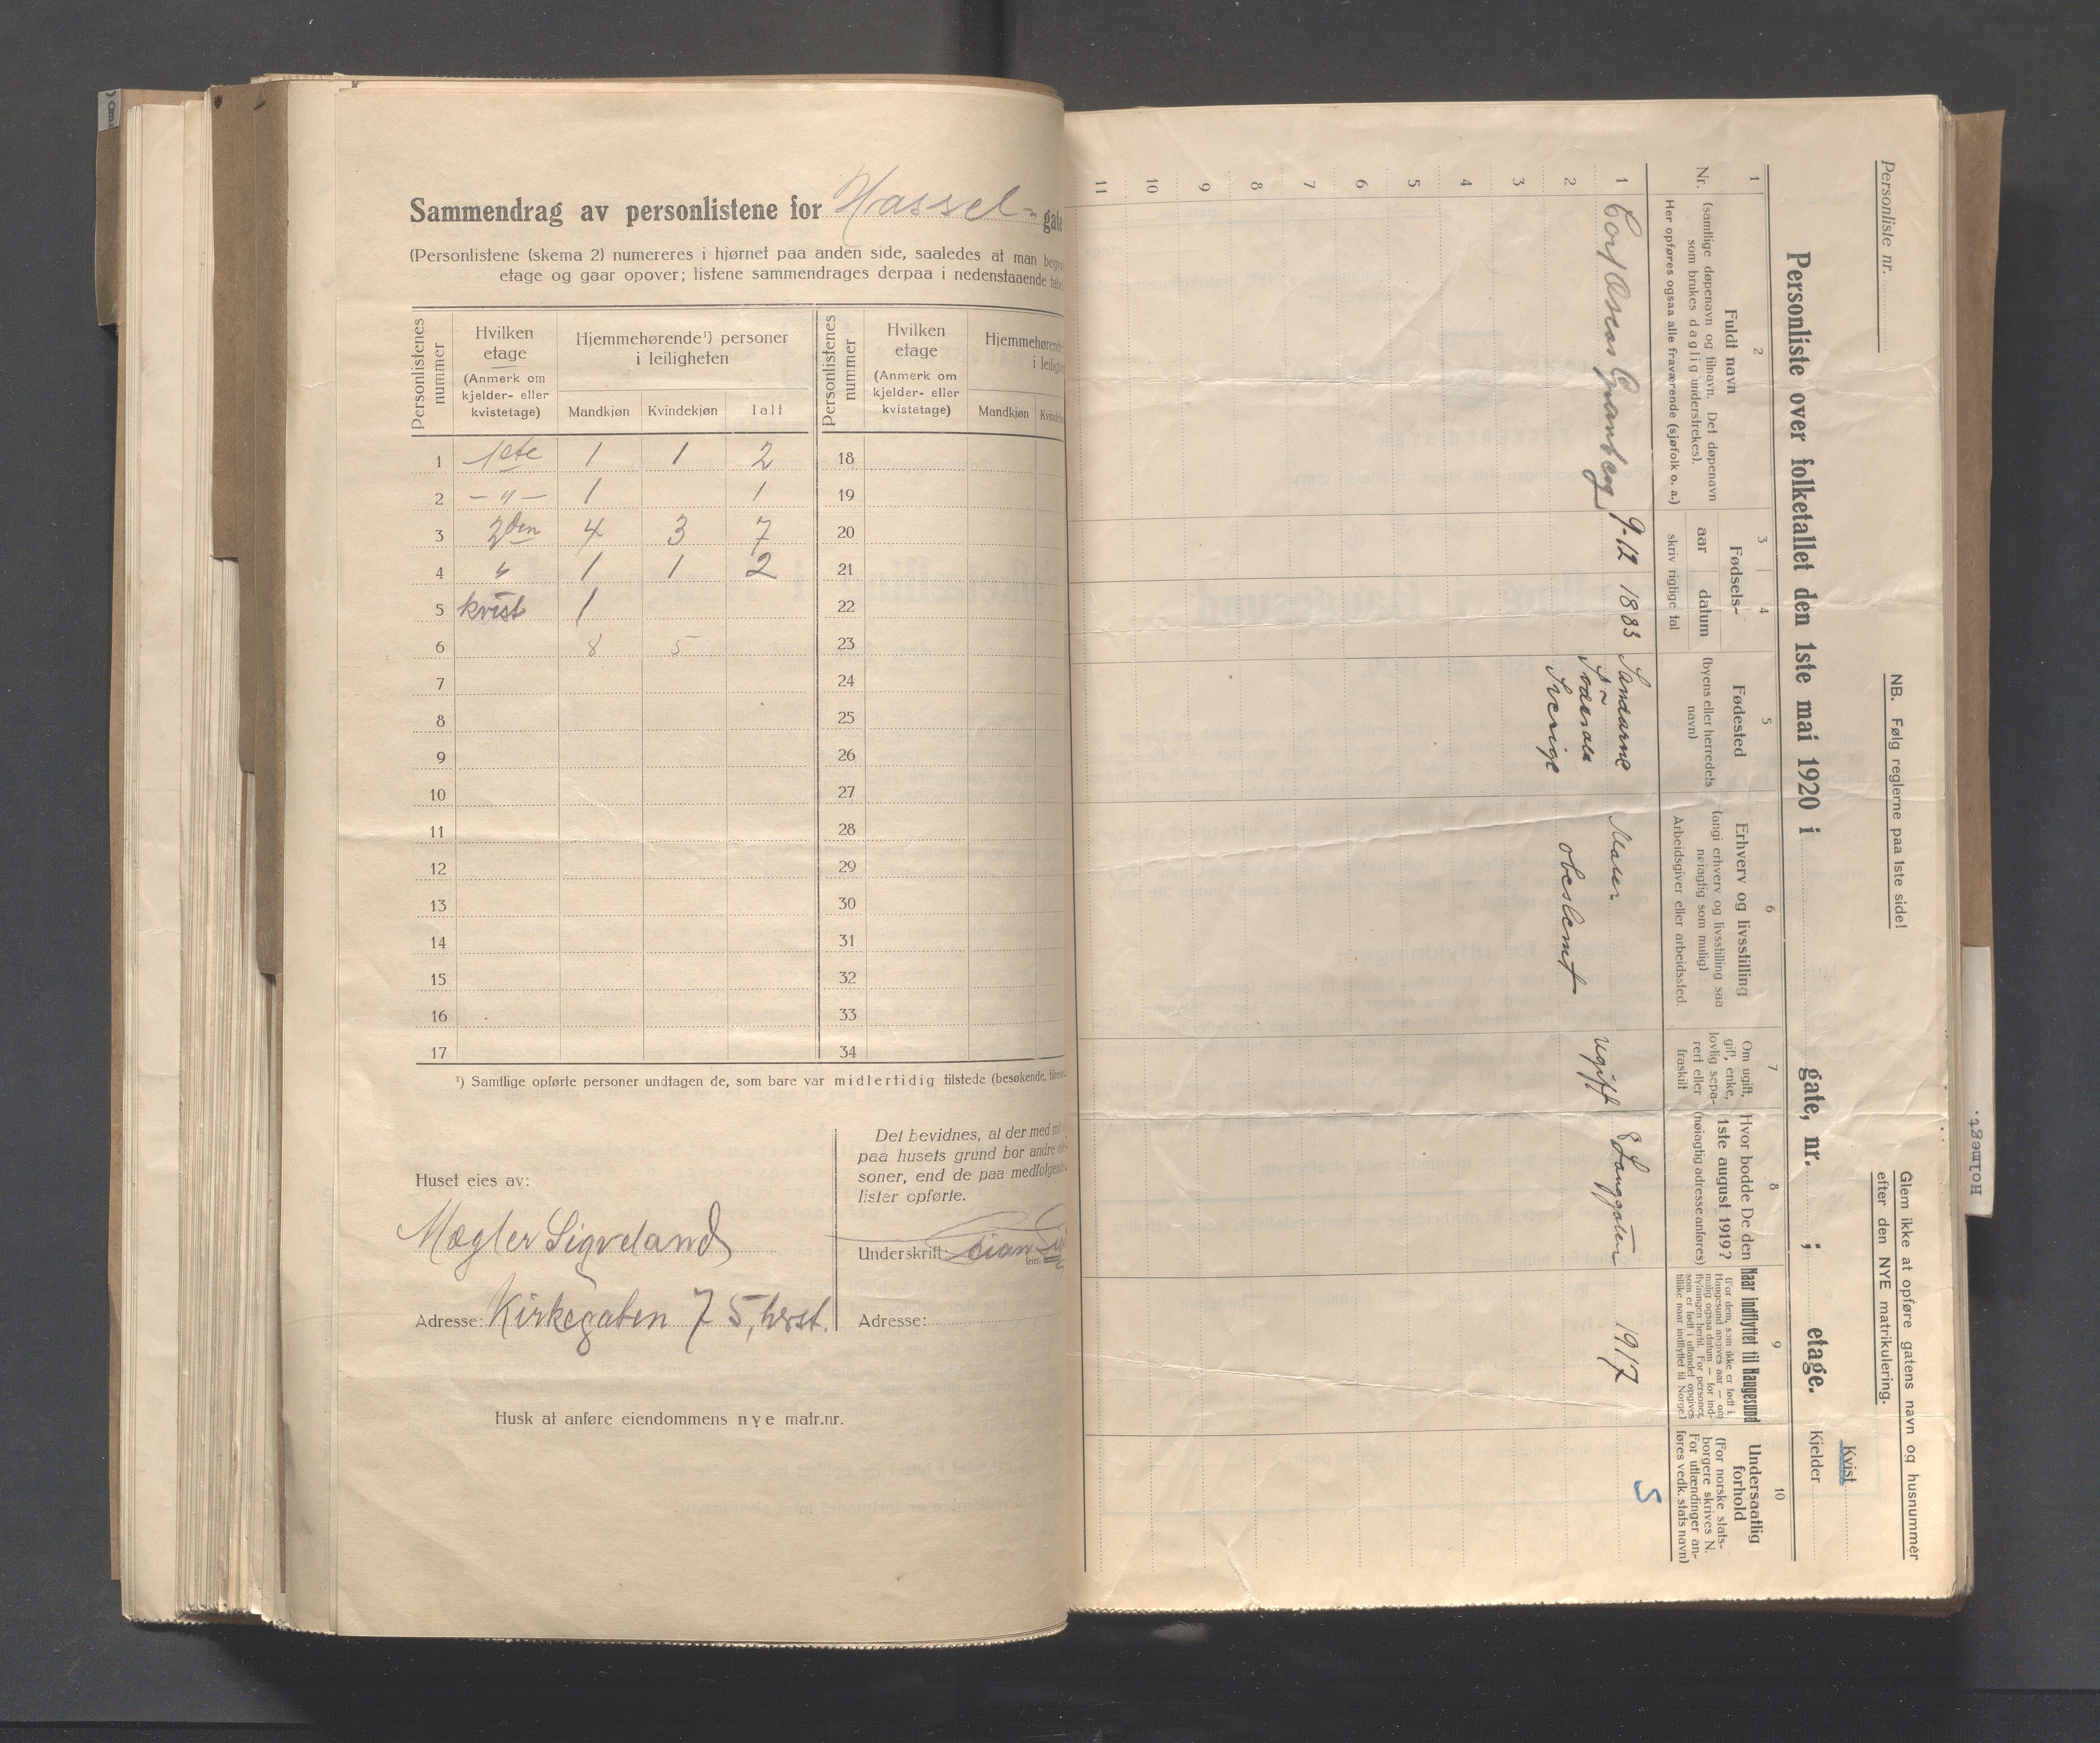 Sammendrag av personlistene for Hassel- gate
(Personlistene (skema 2) numereres i hjørnet paa anden side, saaledes at man
etage og gaar opover; listene sammendrages derpaa i nedenstaaende
Personlistenes nummer
Hvilken etage
(Anmerk om kjelder- eller kvistetage)
Hjemmehørende¹) personer i leiligheten
Mandkjøn Kvindekjøn Ialt
Personlistenes nummer
Hvilken etage
(Anmerk om kjelder- eller kvistetage)
Mandkjøn
1 1ste 1 1 2 18
2 — " — 1 1 19
3 2den 4 3 7 20
4 " 1 1 2 21
5 kvist 1 22
6 8 5 23
7 24
8 25
9 26
10 27
11 28
12 29
13 30
14 31
15 32
16 33
17 34
¹) Samtlige opførte personer undtagen de, som bare var midlertidig tilstede (besøkende,
Huset eies av:
Mægler Sigveland
Adresse: Kirkegaten 75, hrst.
Det bevidnes, at der med
paa husets grund bor andre
soner, end de paa medfølgende
lister opførte.
Underskrift:
Adresse:
Husk at anføre eiendommens nye matr.nr.
Personliste nr.
NB. Følg reglerne paa 1ste side!
Glem ikke at opføre gatens navn og husnummer
efter den NYE matrikulering.
Kvist
Personliste over folketallet den 1ste mai 1920 i gate, nr. ; etage. Kjelder
1 2 3 4 5 6 7 8 9 10
Nr.
Fuldt navn
(samtlige døpenavn og tilnavn. Det døpenavn
som brukes daglig understrekes).
Her opføres ogsaa alle fraværende (sjøfolk o. a.)
Fødsels-
aar datum
skriv rigtige tal
Fødested
(byens eller herredets
navn)
Erhverv og livsstilling
(angi erhverv og livsstilling saa
nøiagtig som mulig)
Arbeidsgiver eller arbeidssted.
Om ugift,
gift, enke,
lovlig sepa-
rert eller
fraskilt
Hvor bodde De den
1ste august 1919?
(nøiagtig adresse anføres)
Naar indflyttet til Haugesund
(For dem, som ikke er født i
Haugesund angives aar — om
mulig ogsaa datum — for ind-
flytningen hertil. For personer,
som er født i utlandet opgives
tillike naar indflyttet til Norge)
Undersaatlig
forhold
(For norske stats-
borgere skrives N.
For utlændinger an-
føres vedk. stats navn)
1 Carl Oscar Granberg 9-12 1883 Sandarne Maler ugift 8 Langgaten 1917 S
2 Söderala Sverige obeslemt
3
4
5
6
7
8
9
10
11
Holmegt.